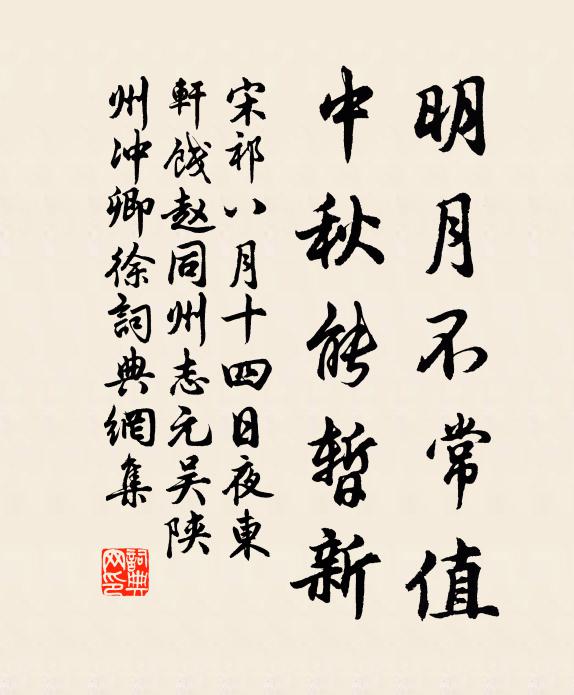 明月不常值
中秋能暂新
宋祁八月十四日夜東
軒餞赵同州志元吴陕
州冲卿徐詞典網集
詞典网印